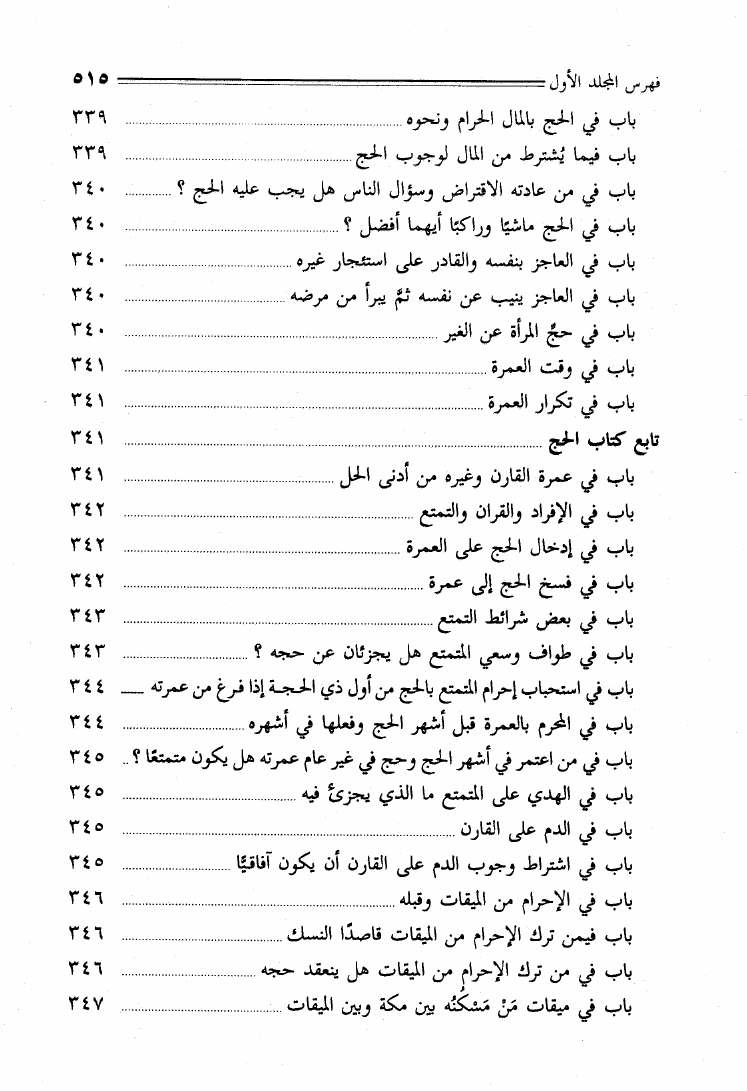 فهرس المجلد الأول ٥١٥
باب في الحج بالمال الحرام ونحوه ٣٣٩
باب فيما يُشترط من المال لوجوب الحج ٣٣٩
باب في من عادته الاقتراض وسؤال الناس هل يجب عليه الحج ؟ ٣٤٠
باب في الحج ماشيًا وراكبًا أيهما أفضل ؟ ٣٤٠
باب في العاجز بنفسه والقادر على استئجار غيره ٣٤٠
باب في العاجز ينيب عن نفسه ثمَّ يبرأ من مرضه ٣٤٠
باب في حجِّ المرأة عن الغير ٣٤٠
باب في وقت العمرة ٣٤١
باب في تكرار العمرة ٣٤١
تابع كتاب الحج ٣٤١
باب في عمرة القارن وغيره من أدنى الحل ٣٤١
باب في الإفراد والقران والتمتع ٣٤٢
باب في إدخال الحج على العمرة ٣٤٢
باب في فسخ الحج إلى عمرة ٣٤٢
باب في بعض شرائط التمتع ٣٤٣
باب في طواف وسعي المتمتع هل يجزئان عن حجه ؟ ٣٤٣
باب في استحباب إحرام المتمتع بالحج من أول ذي الحجة إذا فرغ من عمرته ٣٤٤
باب في المحرم بالعمرة قبل أشهر الحج وفعلها في أشهره ٣٤٤
باب في من اعتمر في أشهر الحج وحج في غير عام عمرته هل يكون متمتعًا ؟ ٣٤٥
باب في الهدي على المتمتع ما الذي يجزئ فيه ٣٤٥
باب في الدم على القارن ٣٤٥
باب في اشتراط وجوب الدم على القارن أن يكون آفاقيًّا ٣٤٥
باب في الإحرام من الميقات وقبله ٣٤٦
باب فيمن ترك الإحرام من الميقات قاصدًا النسك ٣٤٦
باب في من ترك الإحرام من الميقات هل ينعقد حجه ٣٤٦
باب في ميقات مَنْ مَسْكَنُه بين مكة وبين الميقات ٣٤٧